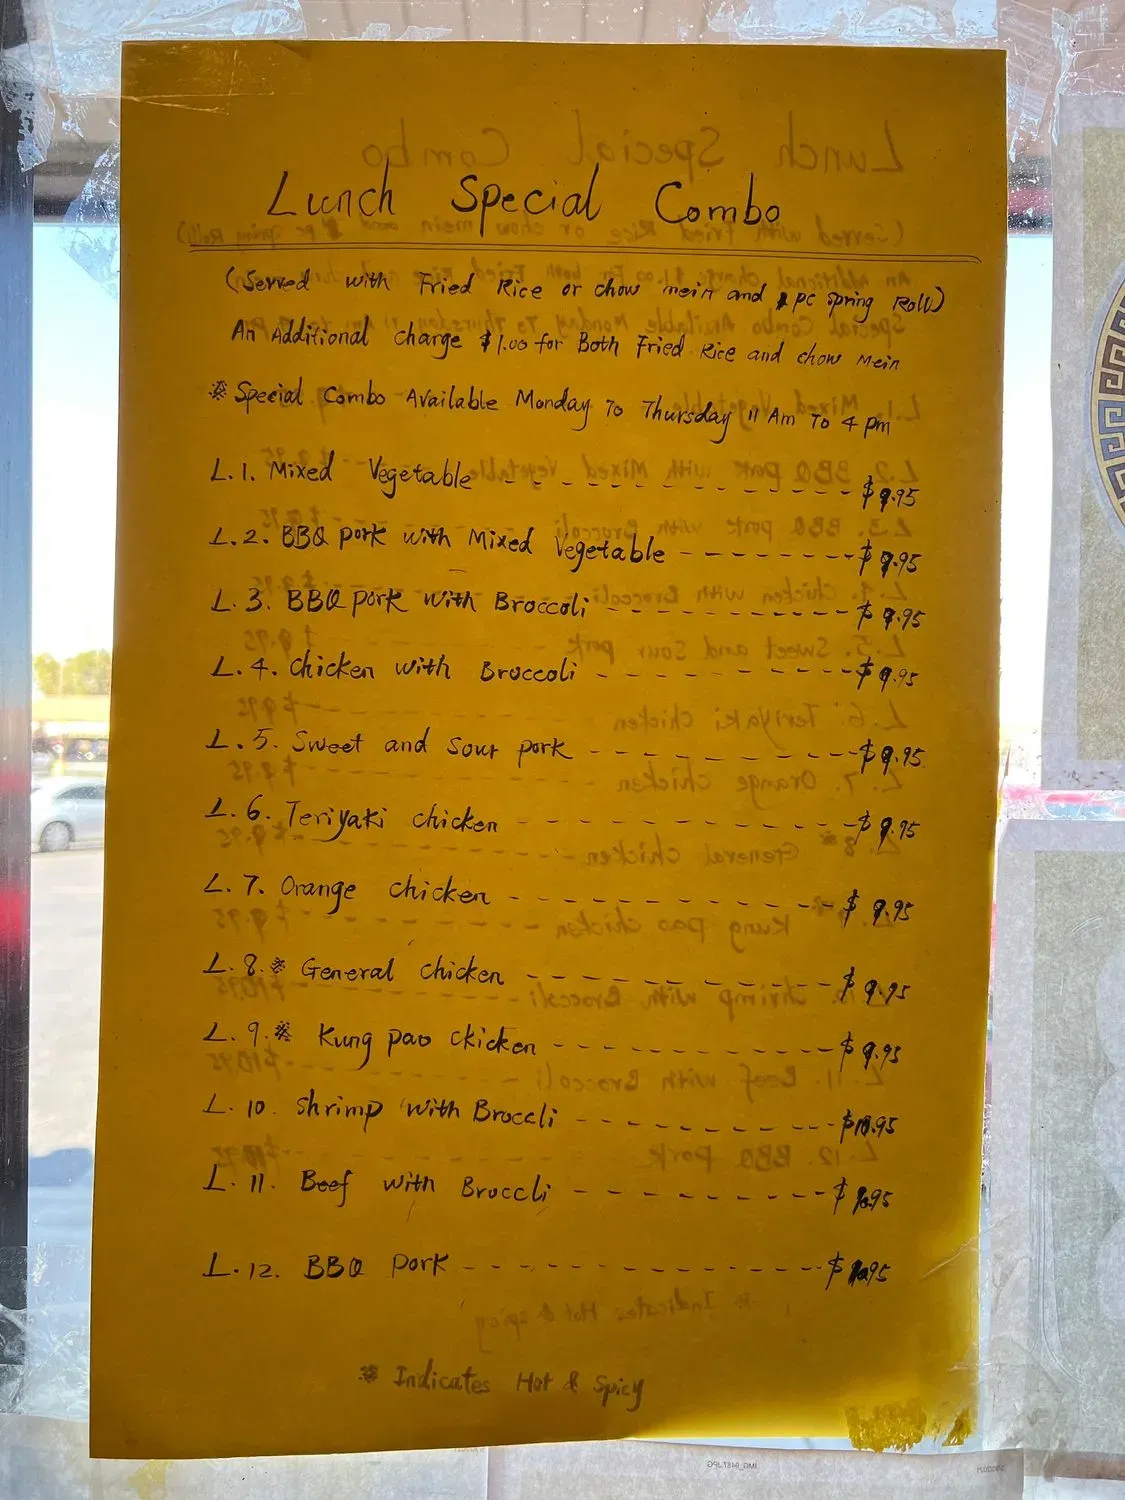 Lunch Special Combo
(Served with Fried Rice or chow mein and 1 pc spring Roll)
An Additional charge $1.00 for Both Fried Rice and chow Mein
※ Special Combo Available Monday To Thursday 11 Am To 4 pm
L.1. Mixed Vegetable - - - - - - - - - - - - $9.95
L.2. BBQ pork with Mixed Vegetable - - - - - - - $9.95
L.3. BBQ pork with Broccoli - - - - - - - - - $9.95
L.4. Chicken with Broccoli - - - - - - - - - $9.95
L.5. Sweet and sour pork - - - - - - - - - $9.95
L.6. Teriyaki chicken - - - - - - - - - - $9.95
L.7. Orange chicken - - - - - - - - - - - $9.95
L.8.※ General chicken - - - - - - - - - - $9.95
L.9.※ Kung pao chicken - - - - - - - - - $9.95
L.10. shrimp with Broccli - - - - - - - - $10.95
L.11. Beef with Broccli - - - - - - - - - $10.95
L.12. BBQ pork - - - - - - - - - - - - - $10.95
※ Indicates Hot & Spicy
IMG_9487.JPG